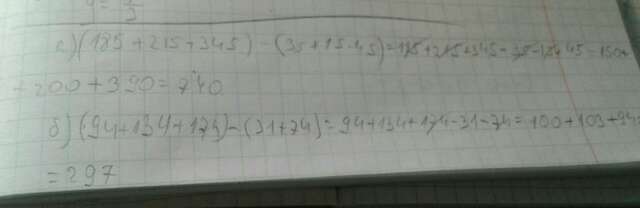 а) (185 + 215 + 345) - (35 + 15 + 45) = 185 + 215 + 345 - 35 - 45 = 150 +
+ 200 + 390 = 740
б) (94 + 134 + 174) - (31 + 74) = 94 + 134 + 174 - 31 - 74 = 100 + 103 + 94
= 297